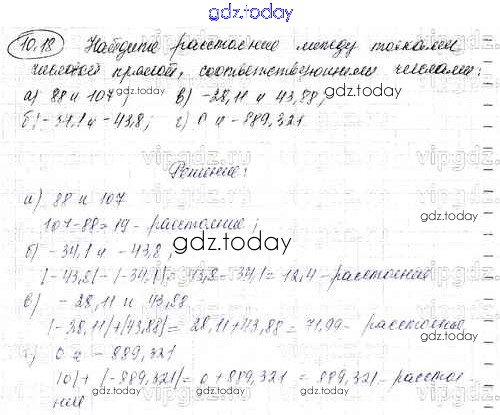 gdz.today
10.18 Найдите расстояние между точками
числовой прямой, соответственными числами:
а) 88 и 107; в) -28,11 и 43,88;
б) -34,1 и -43,8; г) 0 и -889,321
gdz.today
Решение:
а) 88 и 107
107-88=19 - расстояние;
б) -34,1 и -43,8;
|-43,8|-|-34,1|= 43,8-34,1= 12,4 - расстояния
в) -28,11 и 43,88
|-28,11|+|43,88|= 28,11+43,88 = 71,99 - расстояние
г) 0 и -889,321
|0|+|-889,321|= 0+889,321 = 889,321 - расстоя
ние
gdz.today